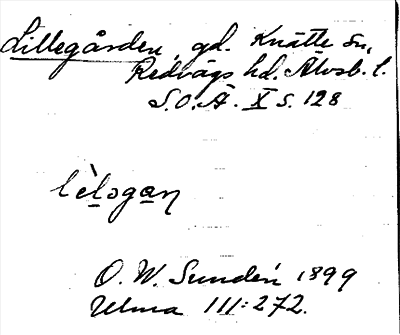 Lillegården, gd. Knätte sn,
Redvägs hd. Älvsb. l.
S.O.Ä. X s. 128
lèlogan
O. W. Sundén 1899
Ulma 111:272.